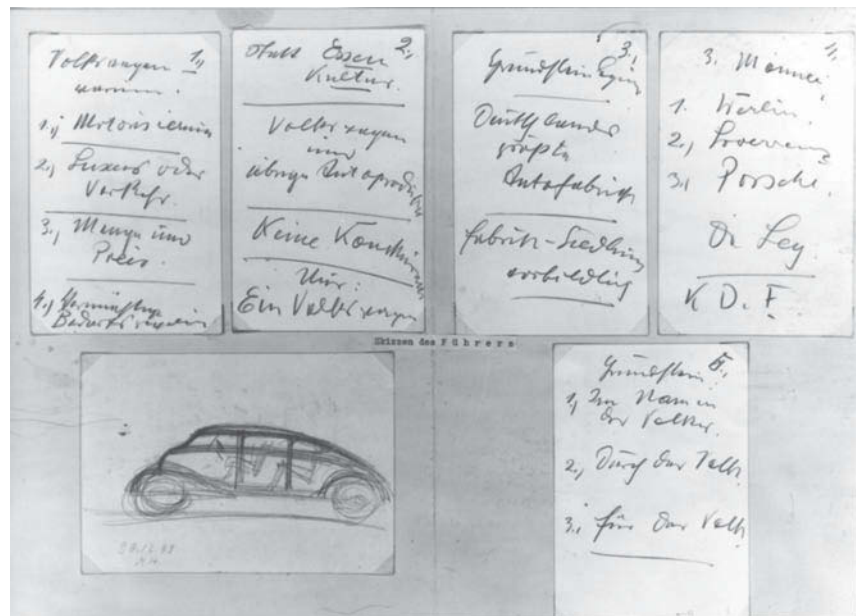 Volkswagen 1.,
warum.
1.) Motorisierung
2., Luxus oder
Verkehr.
3., Menge und
Preis.
4.,
statt Essen 2.,
Kultur.
Volkswagen
und
übrige Autoproduktion
Keine Konkurrenz
Nur:
Ein Volkswagen
Grundsteinlegung 3.,
Deutschlands
größte
Autofabrik
Fabrik-Siedlung
vorbildlich
4.,
3. Männer,
1. Werlin.
2., Lafferenz
3., Porsche.
Dr Ley.
K. D. F.
Skizzen des Führers
Grundstein: 5.,
1, Im Namen
des Volkes.
2., Durch das Volk
3., für das Volk